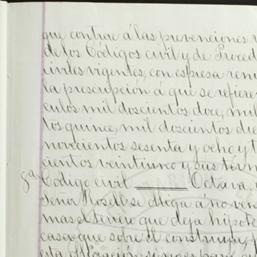 que contrae á las prevenciones
de los Códigos civil y de Proced
civiles vigentes, con espresa ren
la prescripción á que se refiere
culos mil doscientos doce, mil
tos quince, mil doscientos die
novecientos sesenta y ocho y t
cientos veintiuno y sus térm
Código civil Octava,
Señor se obliga á no ven
mas el terreno que deja hipote
casa que sobre él construya,
esta obligación